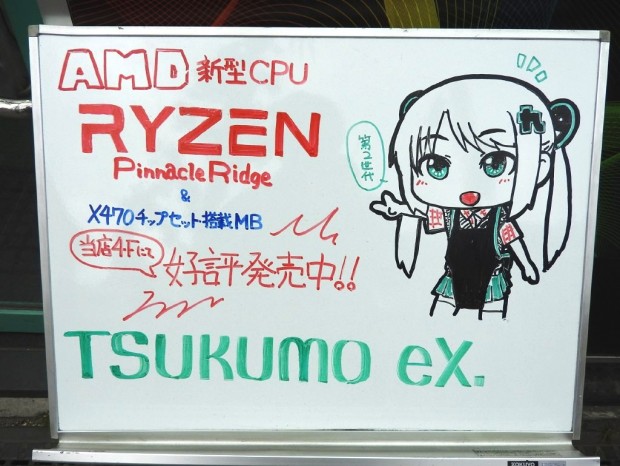 AMD 新型CPU
RYZEN
Pinnacle Ridge
&
X470チップセット搭載MB
当店4Fにて
好評発売中!!
TSUKUMO eX.
第2世代
九